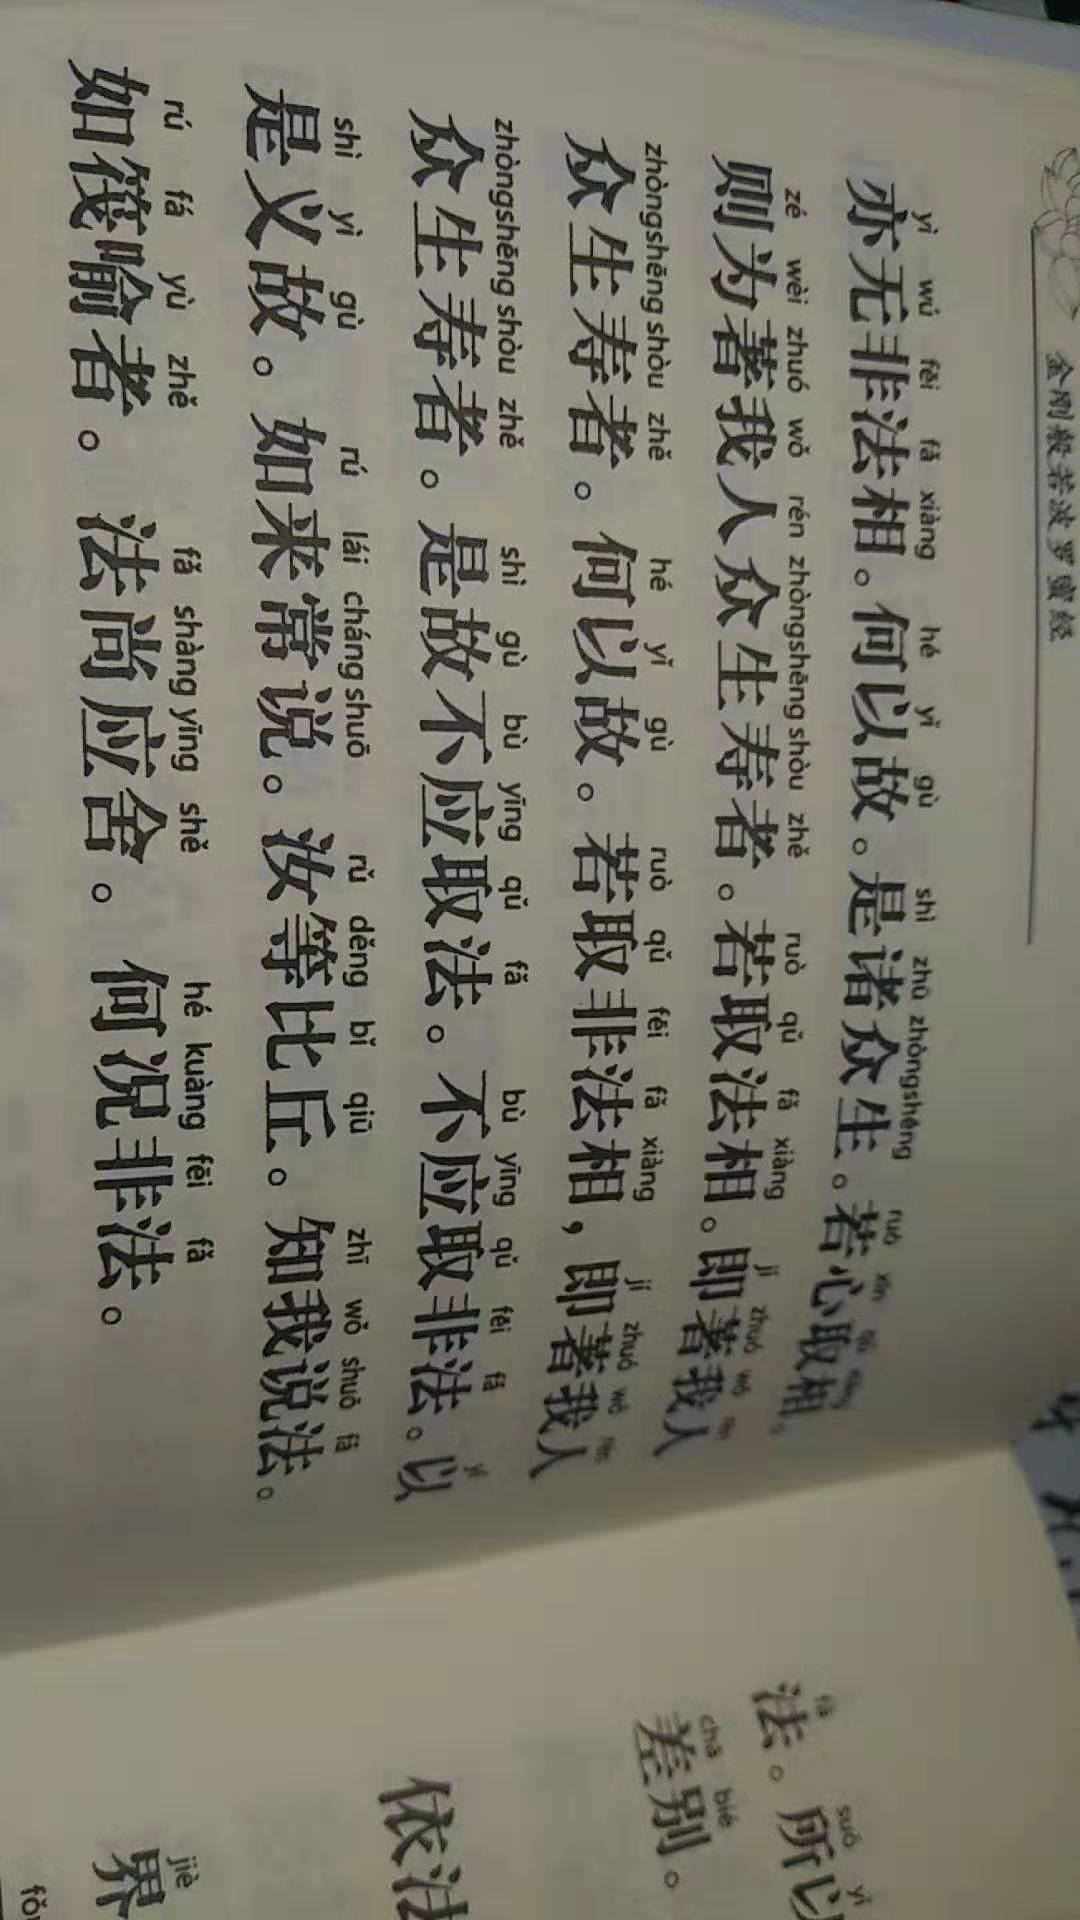 金刚般若波罗蜜经
yì wú fēi fǎ xiàng hé yǐ gù shì zhū zhòngshēng ruò xīn
亦无非法相。何以故。是诸众生。若心取相。
zé wèi zhuó wǒ rén zhòngshēng shòu zhě ruò qǔ fǎ xiàng jí zhuó wǒ
则为著我人众生寿者。若取法相。即著我人
zhòngshēng shòu zhě hé yǐ gù ruò qǔ fēi fǎ xiàng jí zhuó wǒ
众生寿者。何以故。若取非法相，即著我人
zhòngshēng shòu zhě shì gù bù yīng qǔ fǎ bù yīng qǔ fēi fǎ yǐ
众生寿者。是故不应取法。不应取非法。以
shì yì gù rú lái cháng shuō rǔ děng bǐ qiū zhī wǒ shuō fǎ
是义故。如来常说。汝等比丘。知我说法。
rú fá yù zhě fǎ shàng yīng shě hé kuàng fēi fǎ
如筏喻者。法尚应舍。何况非法。
fǎ suǒ yǐ
法。所以
chā bié
差别。
依法
jiè
界